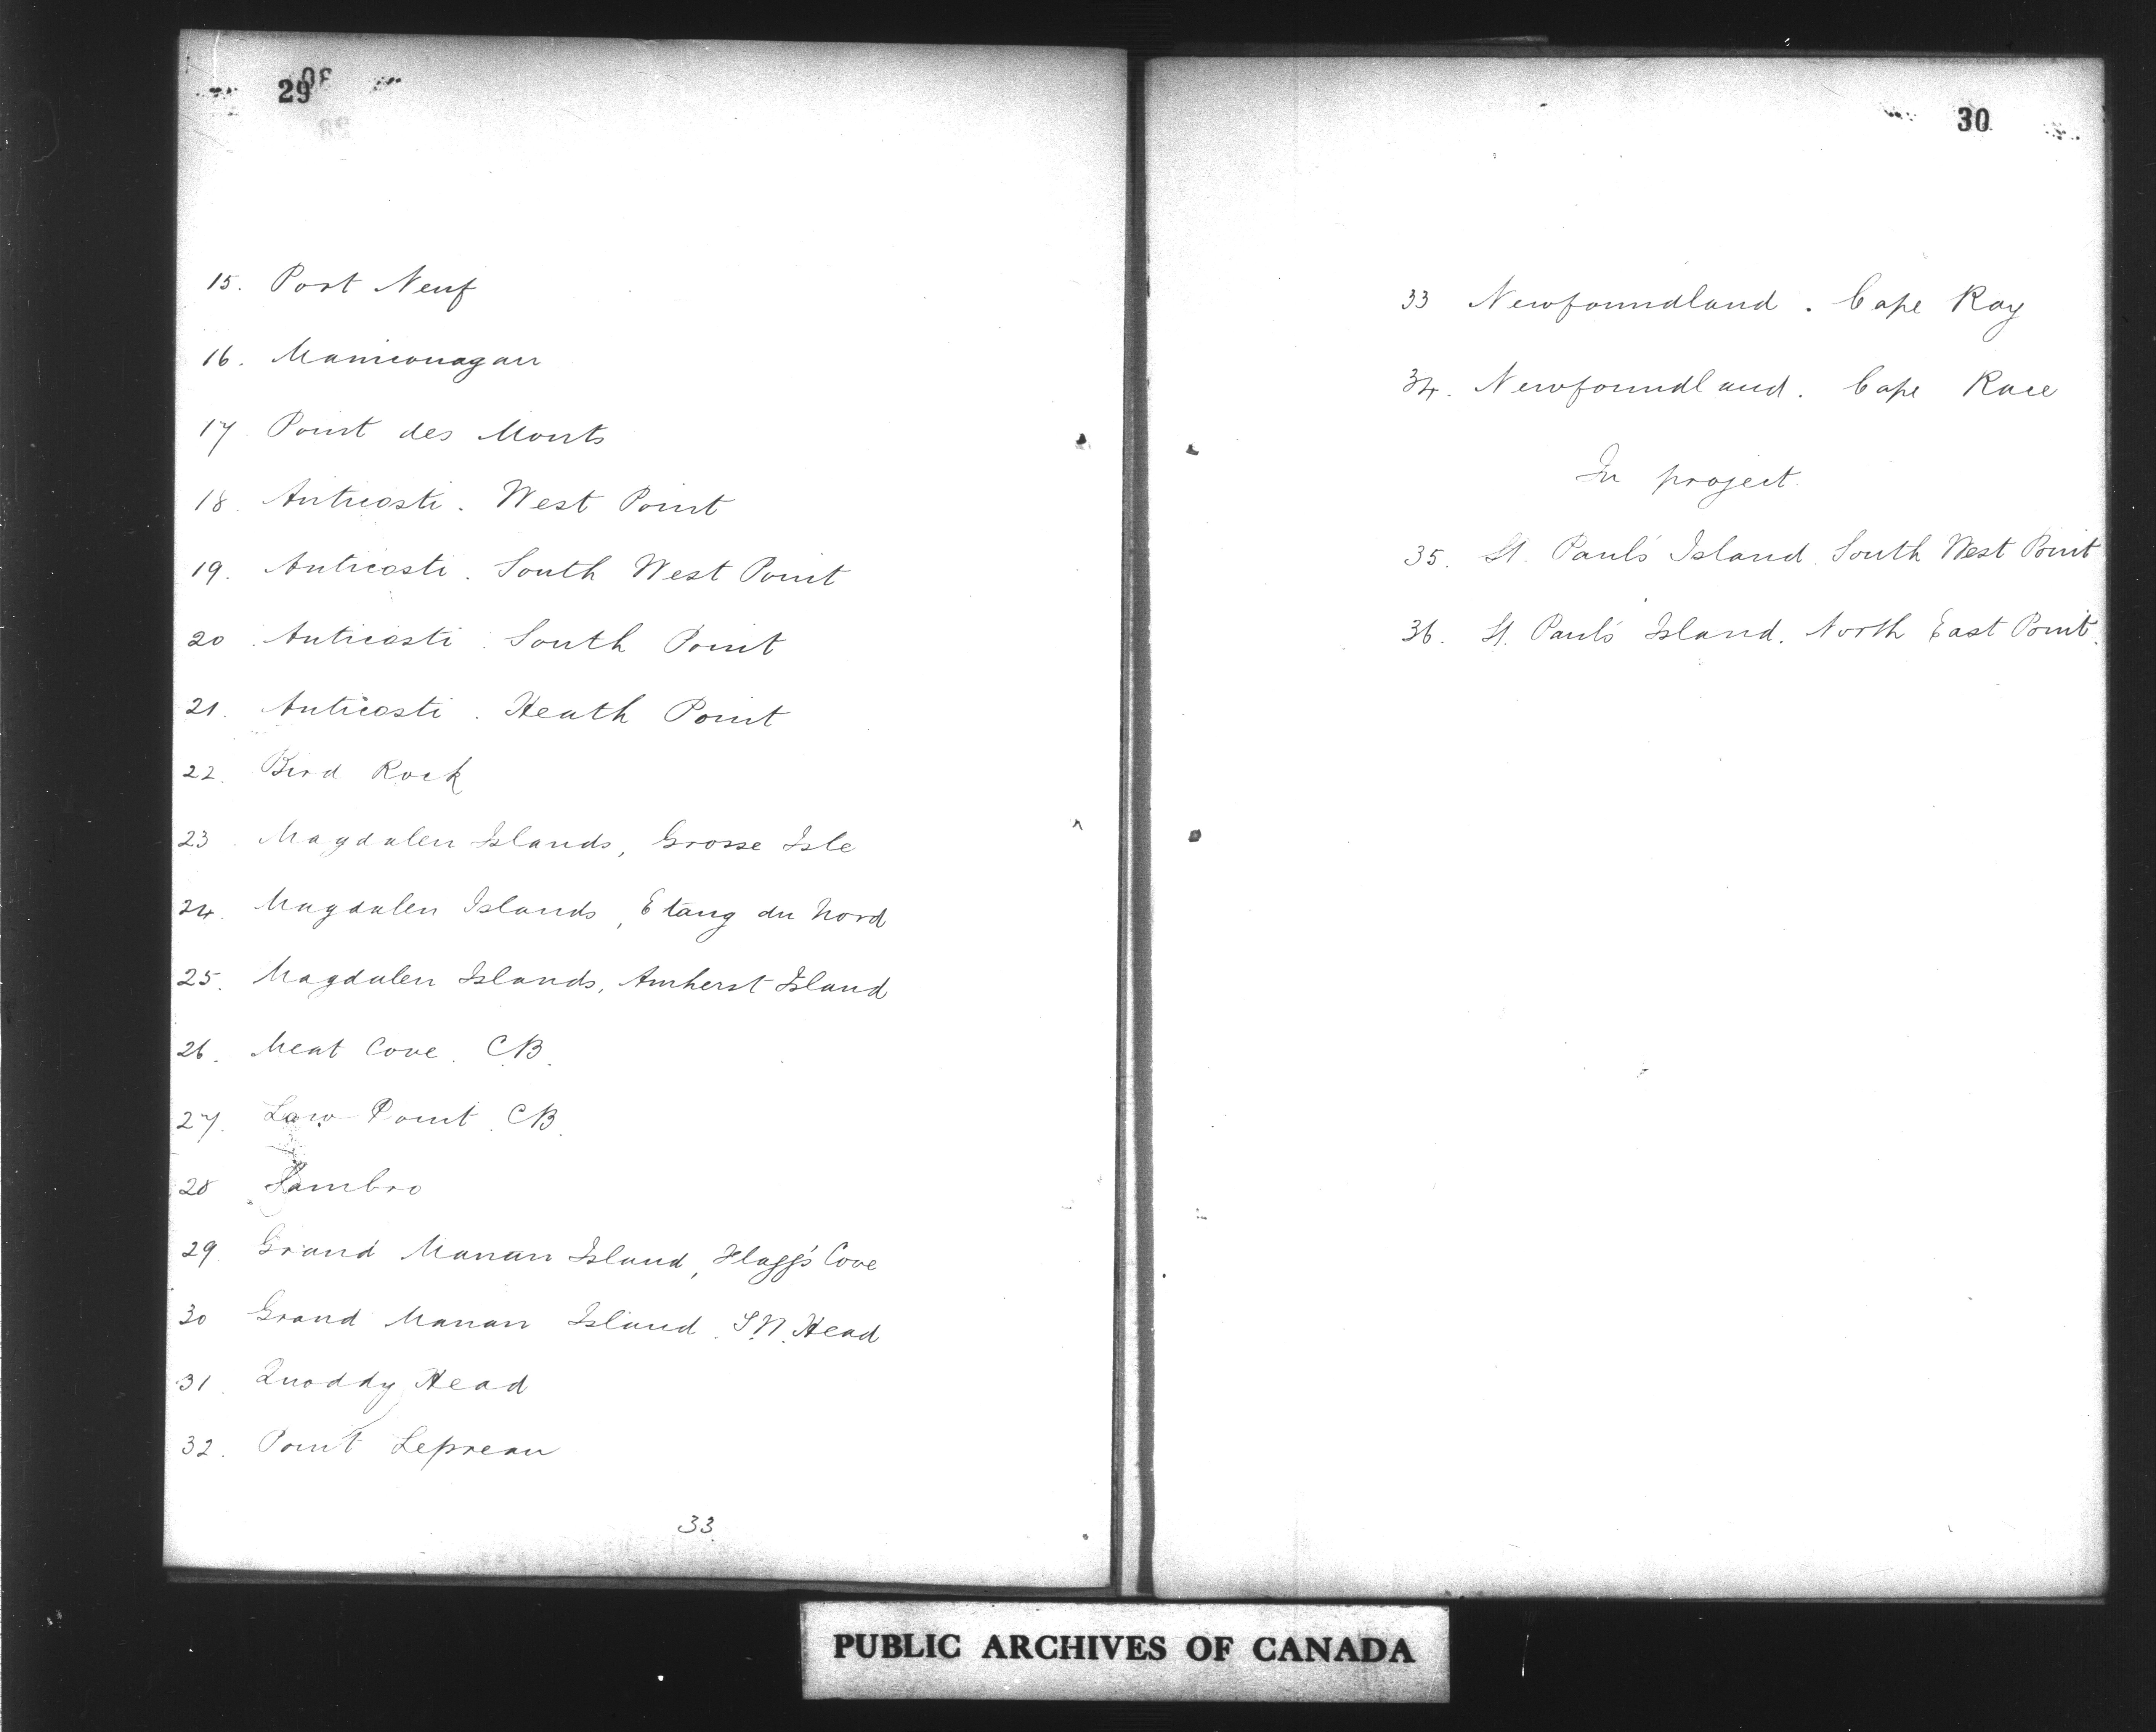 29
15. Port Neuf
16. Manicouagan
17. Point des Monts
18. Anticosti. West Point
19. Anticosti. South West Point
20. Anticosti. South Point
21. Anticosti. Heath Point
22. Bird Rock
23. Magdalen Islands, Grosse Isle
24. Magdalen Islands, Etang du Nord
25. Magdalen Islands, Amherst Island
26. Meat Cove. C.B.
27. Low Point. C.B.
28 Sambro
29. Grand Manan Island, Flagg's Cove
30 Grand Manan Island. S.W. Head
31. Quoddy Head
32. Point Lepreau
33
30
33 Newfoundland. Cape Ray
34. Newfoundland. Cape Race
In project.
35. St. Paul's Island. South West Point
36. St. Paul's Island. North East Point.
PUBLIC ARCHIVES OF CANADA